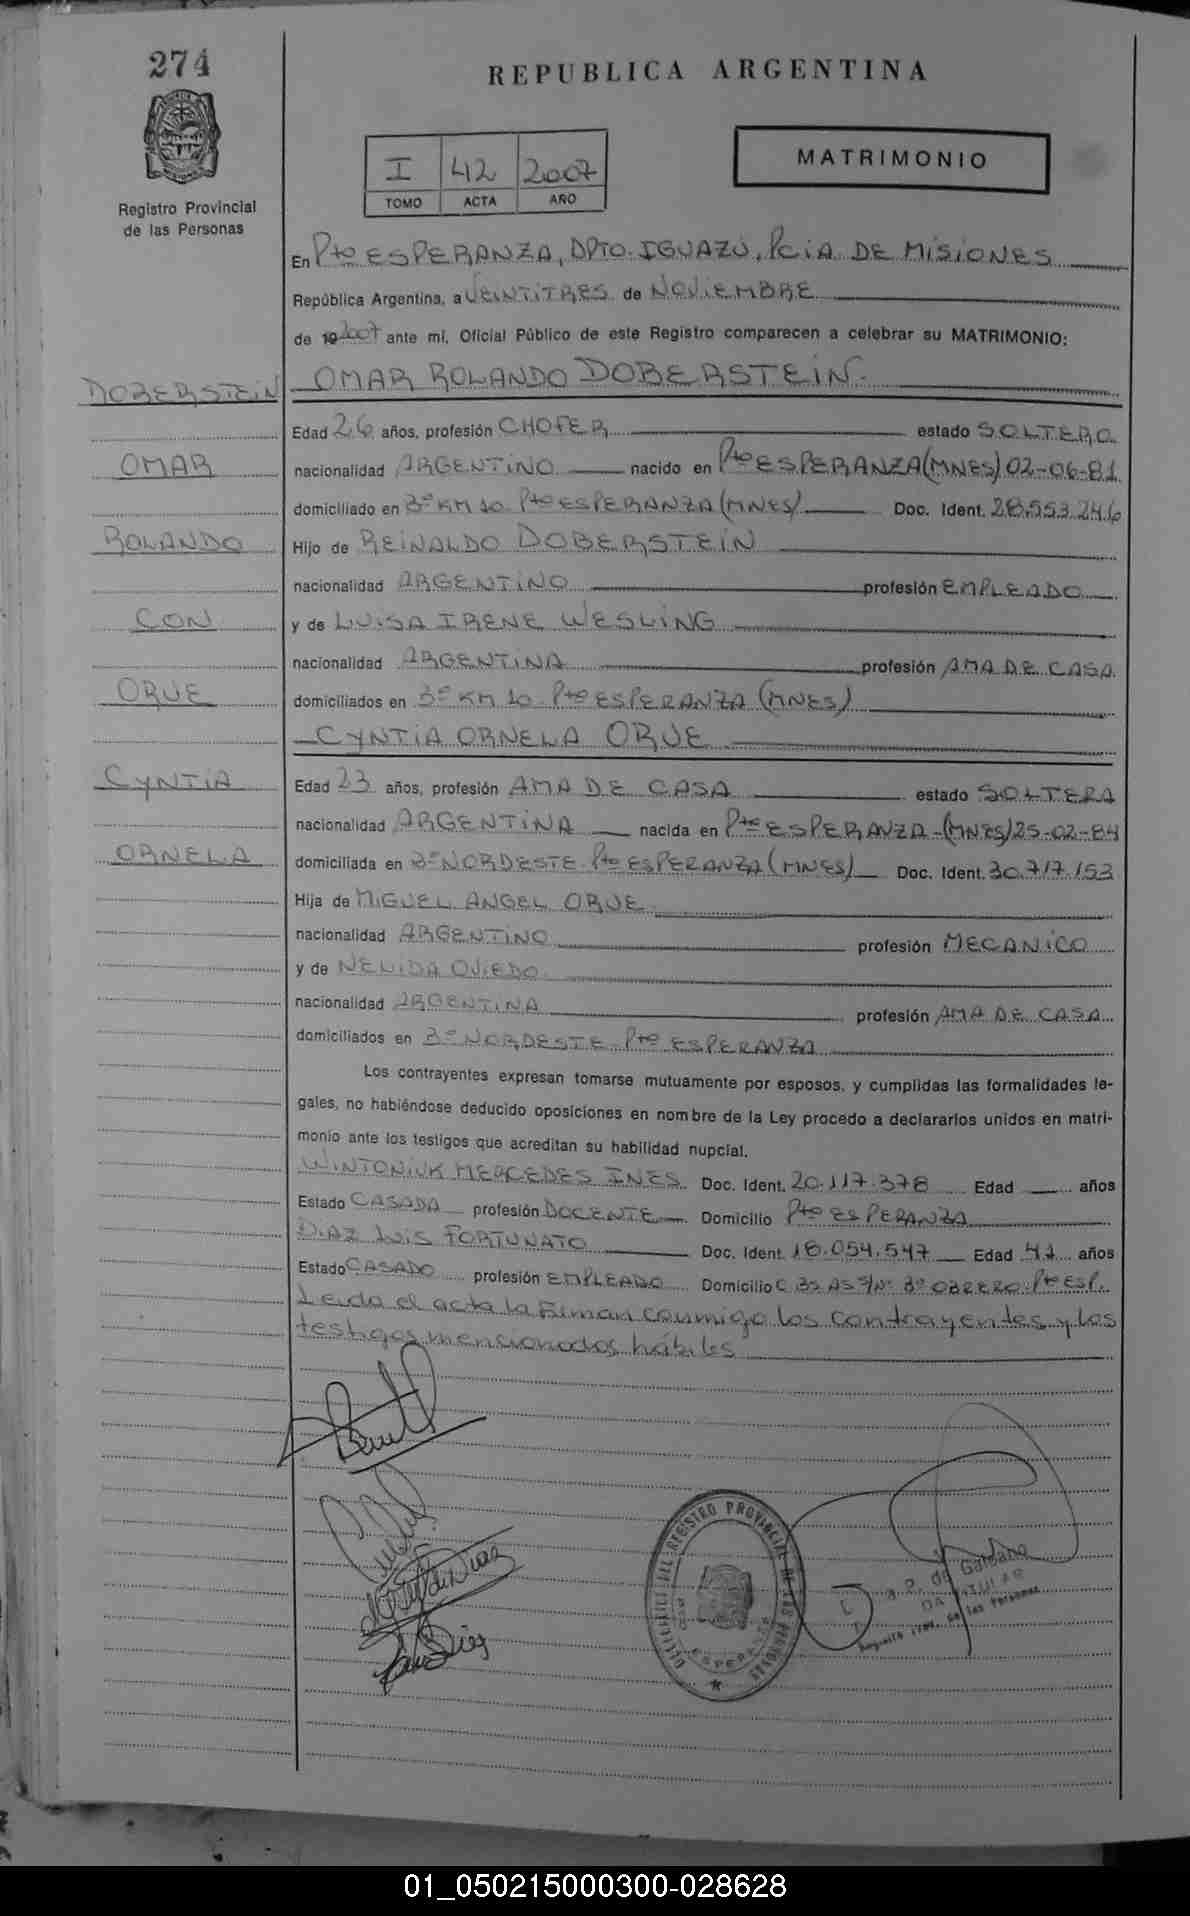 274
REPUBLICA ARGENTINA
I 42 2007
TOMO ACTA AÑO
MATRIMONIO
Registro Provincial
de las Personas
En Pto ESPERANZA, DPTO. IGUAZÚ, Pcia DE MISIONES
República Argentina, a VEINTITRES de NOVIEMBRE
de 192007 ante mi, Oficial Público de este Registro comparecen a celebrar su MATRIMONIO:
DOBERSTEIN
OMAR ROLANDO DOBERSTEIN.
Edad 26 años, profesión CHOFER estado SOLTERO
OMAR
nacionalidad ARGENTINO nacido en Pto ESPERANZA (MNES) 02-06-81
domiciliado en Bº KM 10. Pto ESPERANZA (MNES) Doc. Ident. 28.553.246
ROLANDO
Hijo de REINALDO DOBERSTEIN
nacionalidad ARGENTINO profesión EMPLEADO
CON
y de LUISA IRENE WESLING
nacionalidad ARGENTINA profesión AMA DE CASA
ORUE
domiciliados en Bº KM 10. Pto ESPERANZA (MNES)
CYNTIA ORNELA ORUE
CYNTIA
Edad 23 años, profesión AMA DE CASA estado SOLTERA
nacionalidad ARGENTINA nacida en Pto ESPERANZA-(MNES) 25-02-84
ORNELA
domiciliada en Bº NORDESTE. Pto ESPERANZA (MNES) Doc. Ident. 30.717.153
Hija de MIGUEL ANGEL ORUE
nacionalidad ARGENTINO profesión MECANICO
y de NELIDA OVIEDO
nacionalidad ARGENTINA profesión AMA DE CASA
domiciliados en Bº NORDESTE Pto ESPERANZA
Los contrayentes expresan tomarse mutuamente por esposos, y cumplidas las formalidades le-
gales, no habiéndose deducido oposiciones en nombre de la Ley procedo a declararlos unidos en matri-
monio ante los testigos que acreditan su habilidad nupcial.
WINTONIUK MERCEDES INES Doc. Ident. 20.117.378 Edad años
Estado CASADA profesión DOCENTE Domicilio Pto ESPERANZA
DIAZ LUIS FORTUNATO Doc. Ident. 18.054.547 Edad 41 años
Estado CASADO profesión EMPLEADO Domicilio C. BS AS S/Nº Bº OBRERO. Pto ESP.
Leida el acta la Firman conmigo los contrayentes y los
testigos mencionados hábiles
DEL REGISTRO PROVINCIAL DE LAS PERSONAS
ESPERANZA
de Galeano
Registro Prov. de las Personas
01_050215000300-028628